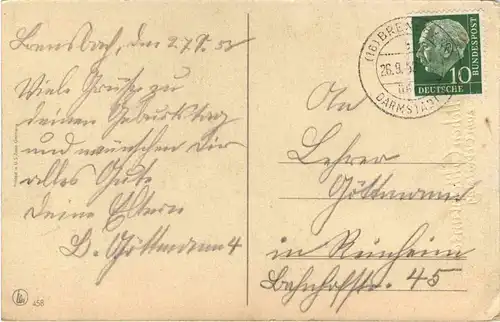 Brensbach, den 27.9.5
Viele Grüße zu
deinem Geburtstag
und wünschen Dir
alles Gute
Deine Eltern
Göttmann 4
456
(16) BRE
26.9.5
DARMSTADT
10
DEUTSCHE
BUNDESPOST
An
Lehrer
Göttmann
in
Bahnhofstr. 45